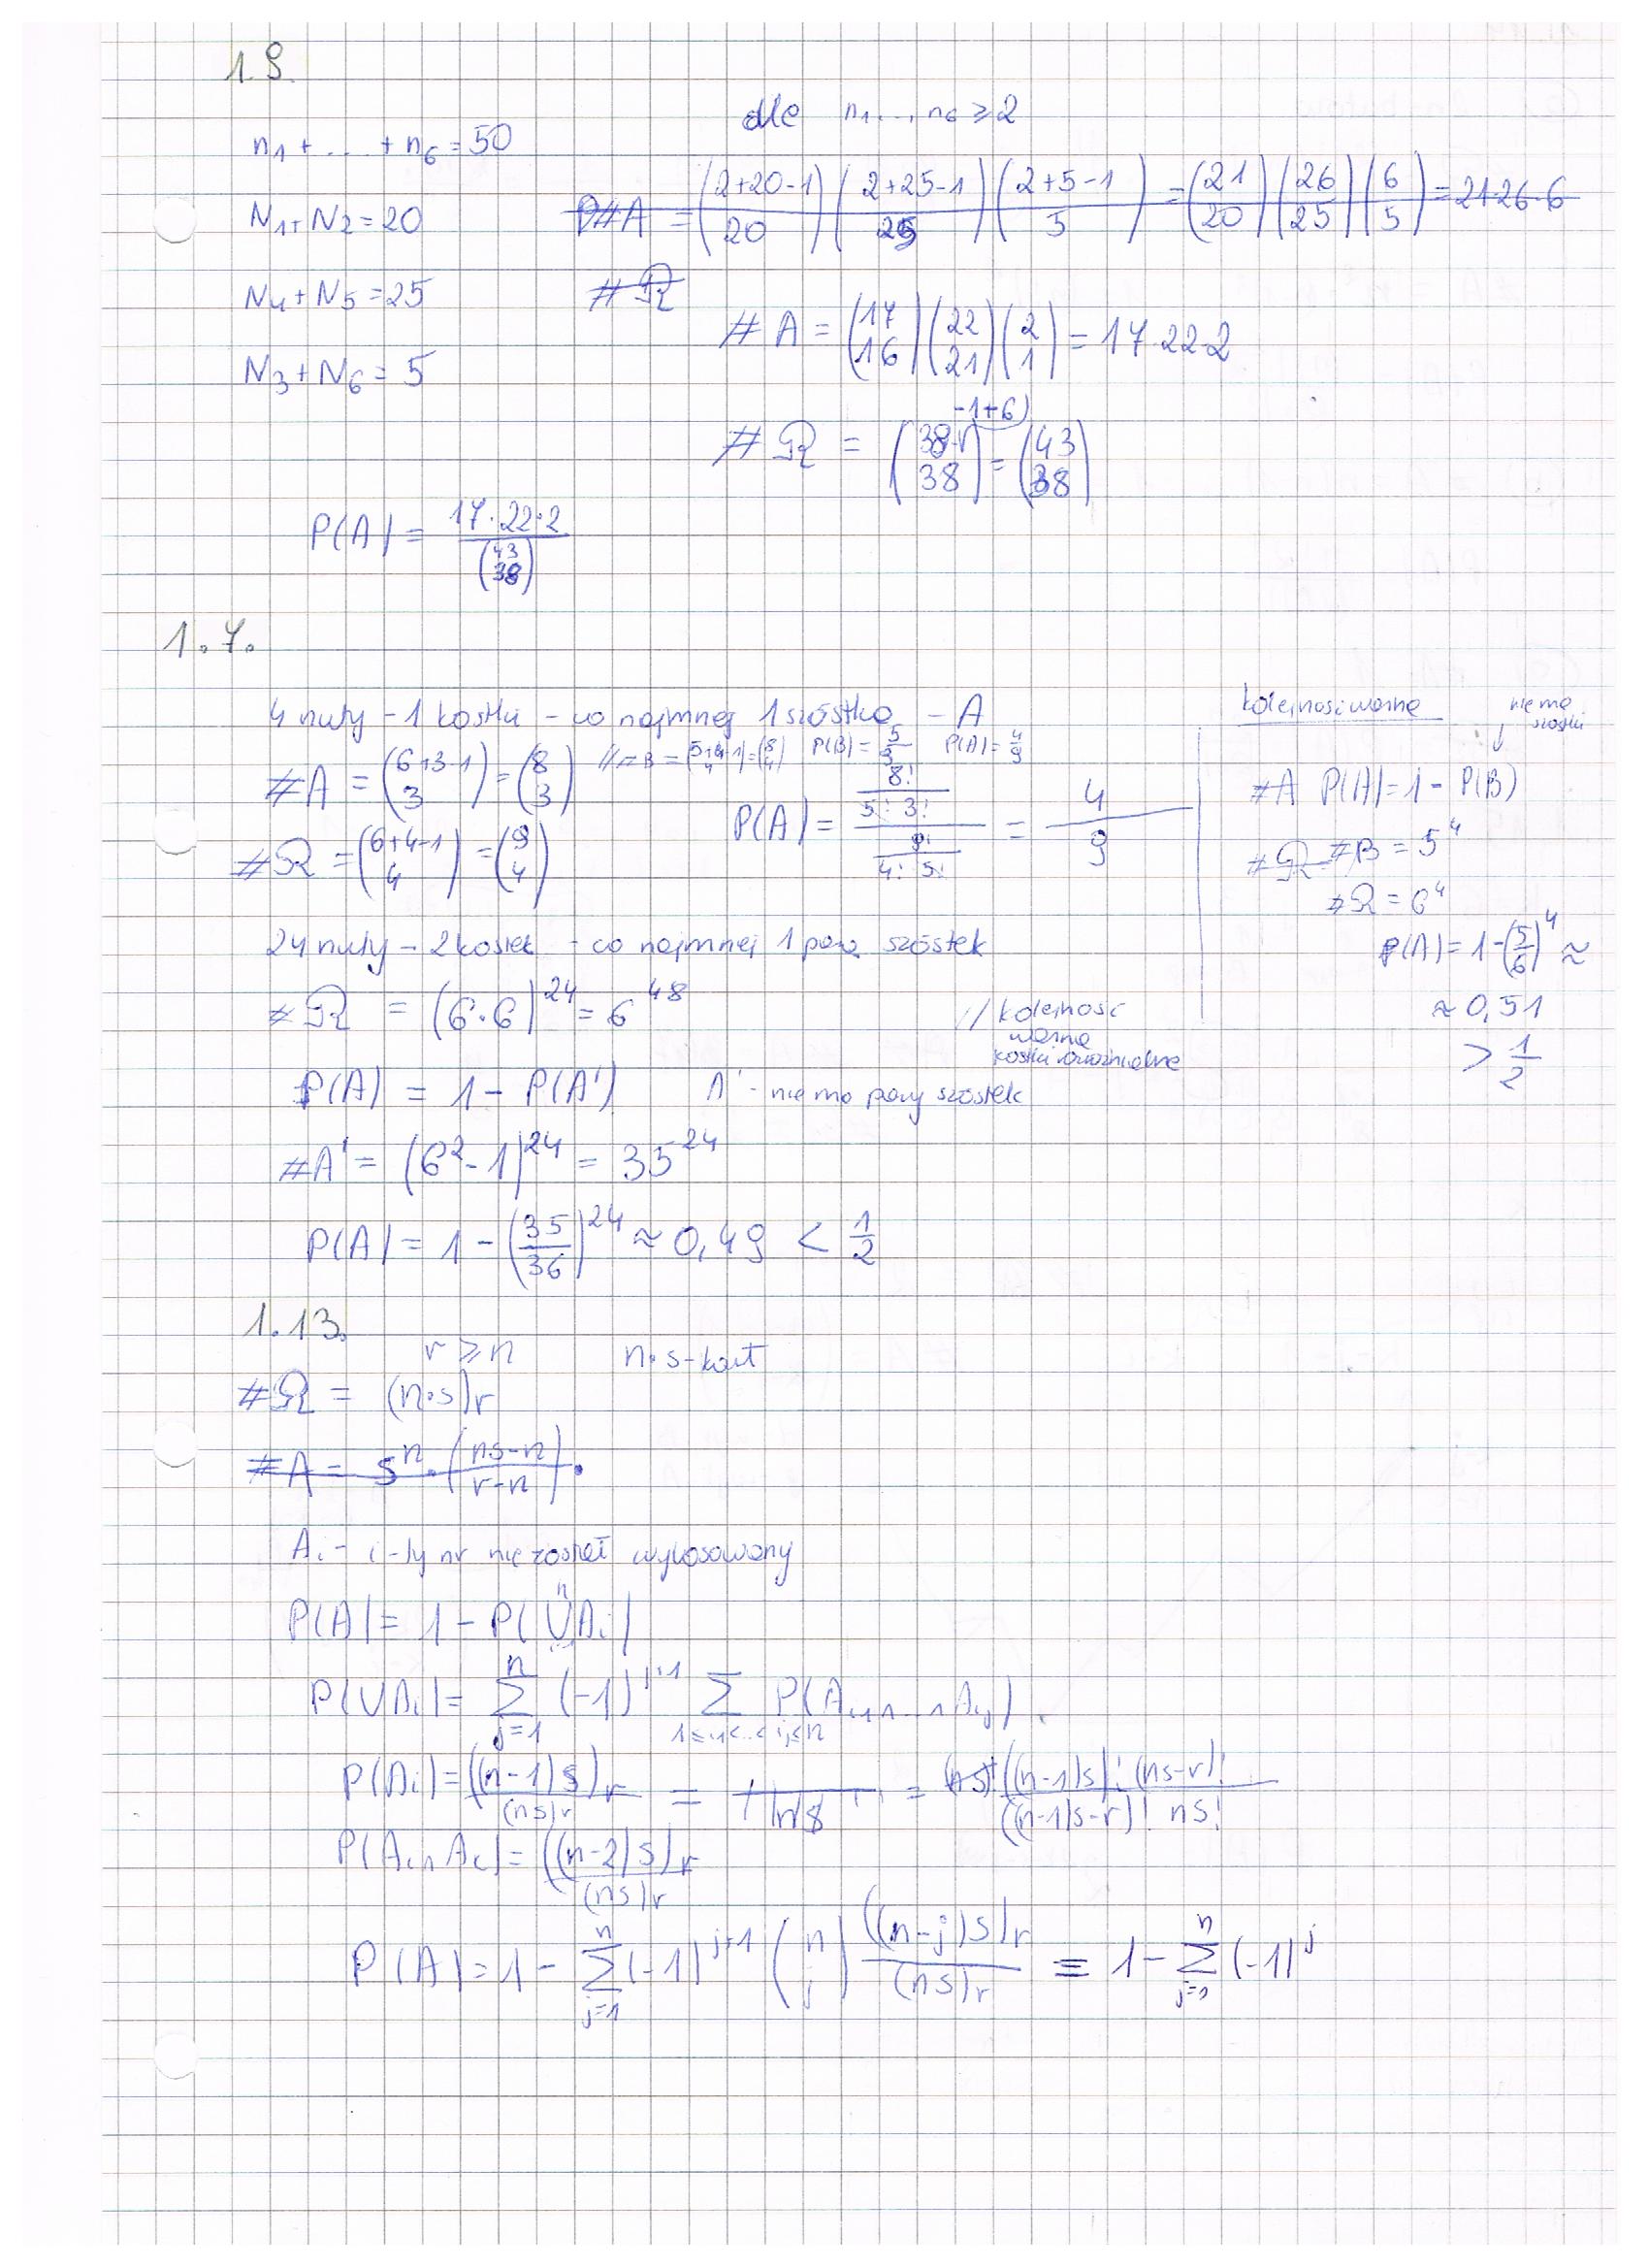 1.9.
dla n₁, ..., n₆ ≥ 2
n₁ + ... + n₆ = 50
N₁ + N₂ = 20
#A = (2+20-1 / 20) (2+25-1 / 25) (2+5-1 / 5) = (21 / 20) (26 / 25) (6 / 5) = 21·26·6
N₄ + N₅ = 25
#Ω
#A = (17 / 16) (22 / 21) (2 / 1) = 17·22·2
N₃ + N₆ = 5
#Ω = (38-1+6 / 38) = (43 / 38)
P(A) = 17·22·2 / (43 / 38)
1.7.
4 rzuty - 1 kostki - co najmniej 1 szóstka - A
#A = (6+3-1 / 3) = (8 / 3) // #B = (5+4-1 / 4) = (8 / 4) P(B) = 5/9 P(A) = 4/9
#Ω = (6+4-1 / 4) = (9 / 4)
P(A) = (8! / 5! 3!) / (9! / 4! 5!) = 4/9
kolejność ważna
nie ma szóstki
↓
#A P(A) = 1 - P(B)
#Ω #B = 5⁴
#Ω = 6⁴
P(A) = 1 - (5/6)⁴ ≈
≈ 0,51
> 1/2
24 rzuty - 2 kostek - co najmniej 1 para szóstek
#Ω = (6·6)²⁴ = 6⁴⁸
// kolejność
ważna
kostki rozróżnialne
P(A) = 1 - P(A') A' - nie ma pary szóstek
#A' = (6² - 1)²⁴ = 35²⁴
P(A) = 1 - (35/36)²⁴ ≈ 0,49 < 1/2
1.13.
r ≥ n n·s - kart
#Ω = (n·s)ᵣ
#A = sⁿ · (ns-n / r-n) ·
Aᵢ - i-ty nr nie został wylosowany
P(A) = 1 - P(⋃ⁿ Aᵢ)
P(∪Aᵢ) = Σⁿ_{j=1} (-1)^{j+1} Σ_{1≤i₁<...<i_j≤n} P(A_{i₁} ∩ ... ∩ A_{i_j})
P(Aᵢ) = ((n-1)s)ᵣ / (ns)ᵣ = = ((n-1)s)! (ns-r)! / ((n-1)s-r)! ns!
P(Aᵢ ∩ Aₖ) = ((n-2)s)ᵣ / (ns)ᵣ
P(A) = 1 - Σⁿ_{j=1} (-1)^{j+1} (n / j) ((n-j)s)ᵣ / (ns)ᵣ = 1 - Σⁿ_{j=1} (-1)^j